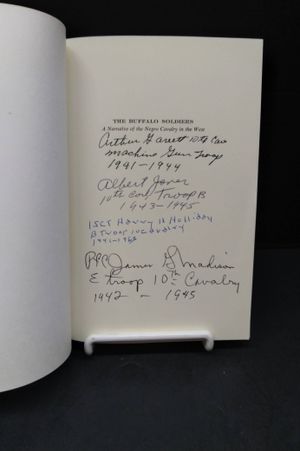 THE BUFFALO SOLDIERS
A Narrative of the Negro Cavalry in the West
Arthur Garrett 10th Cav
machine Gun Troop
1941-1944
Albert Jones
10th Cav Troop B
1943-1945
1SGT Harry H Holliday
B Troop 10 Cavalry
PFC James G. Madison
E troop 10th Cavalry
1942 - 1945